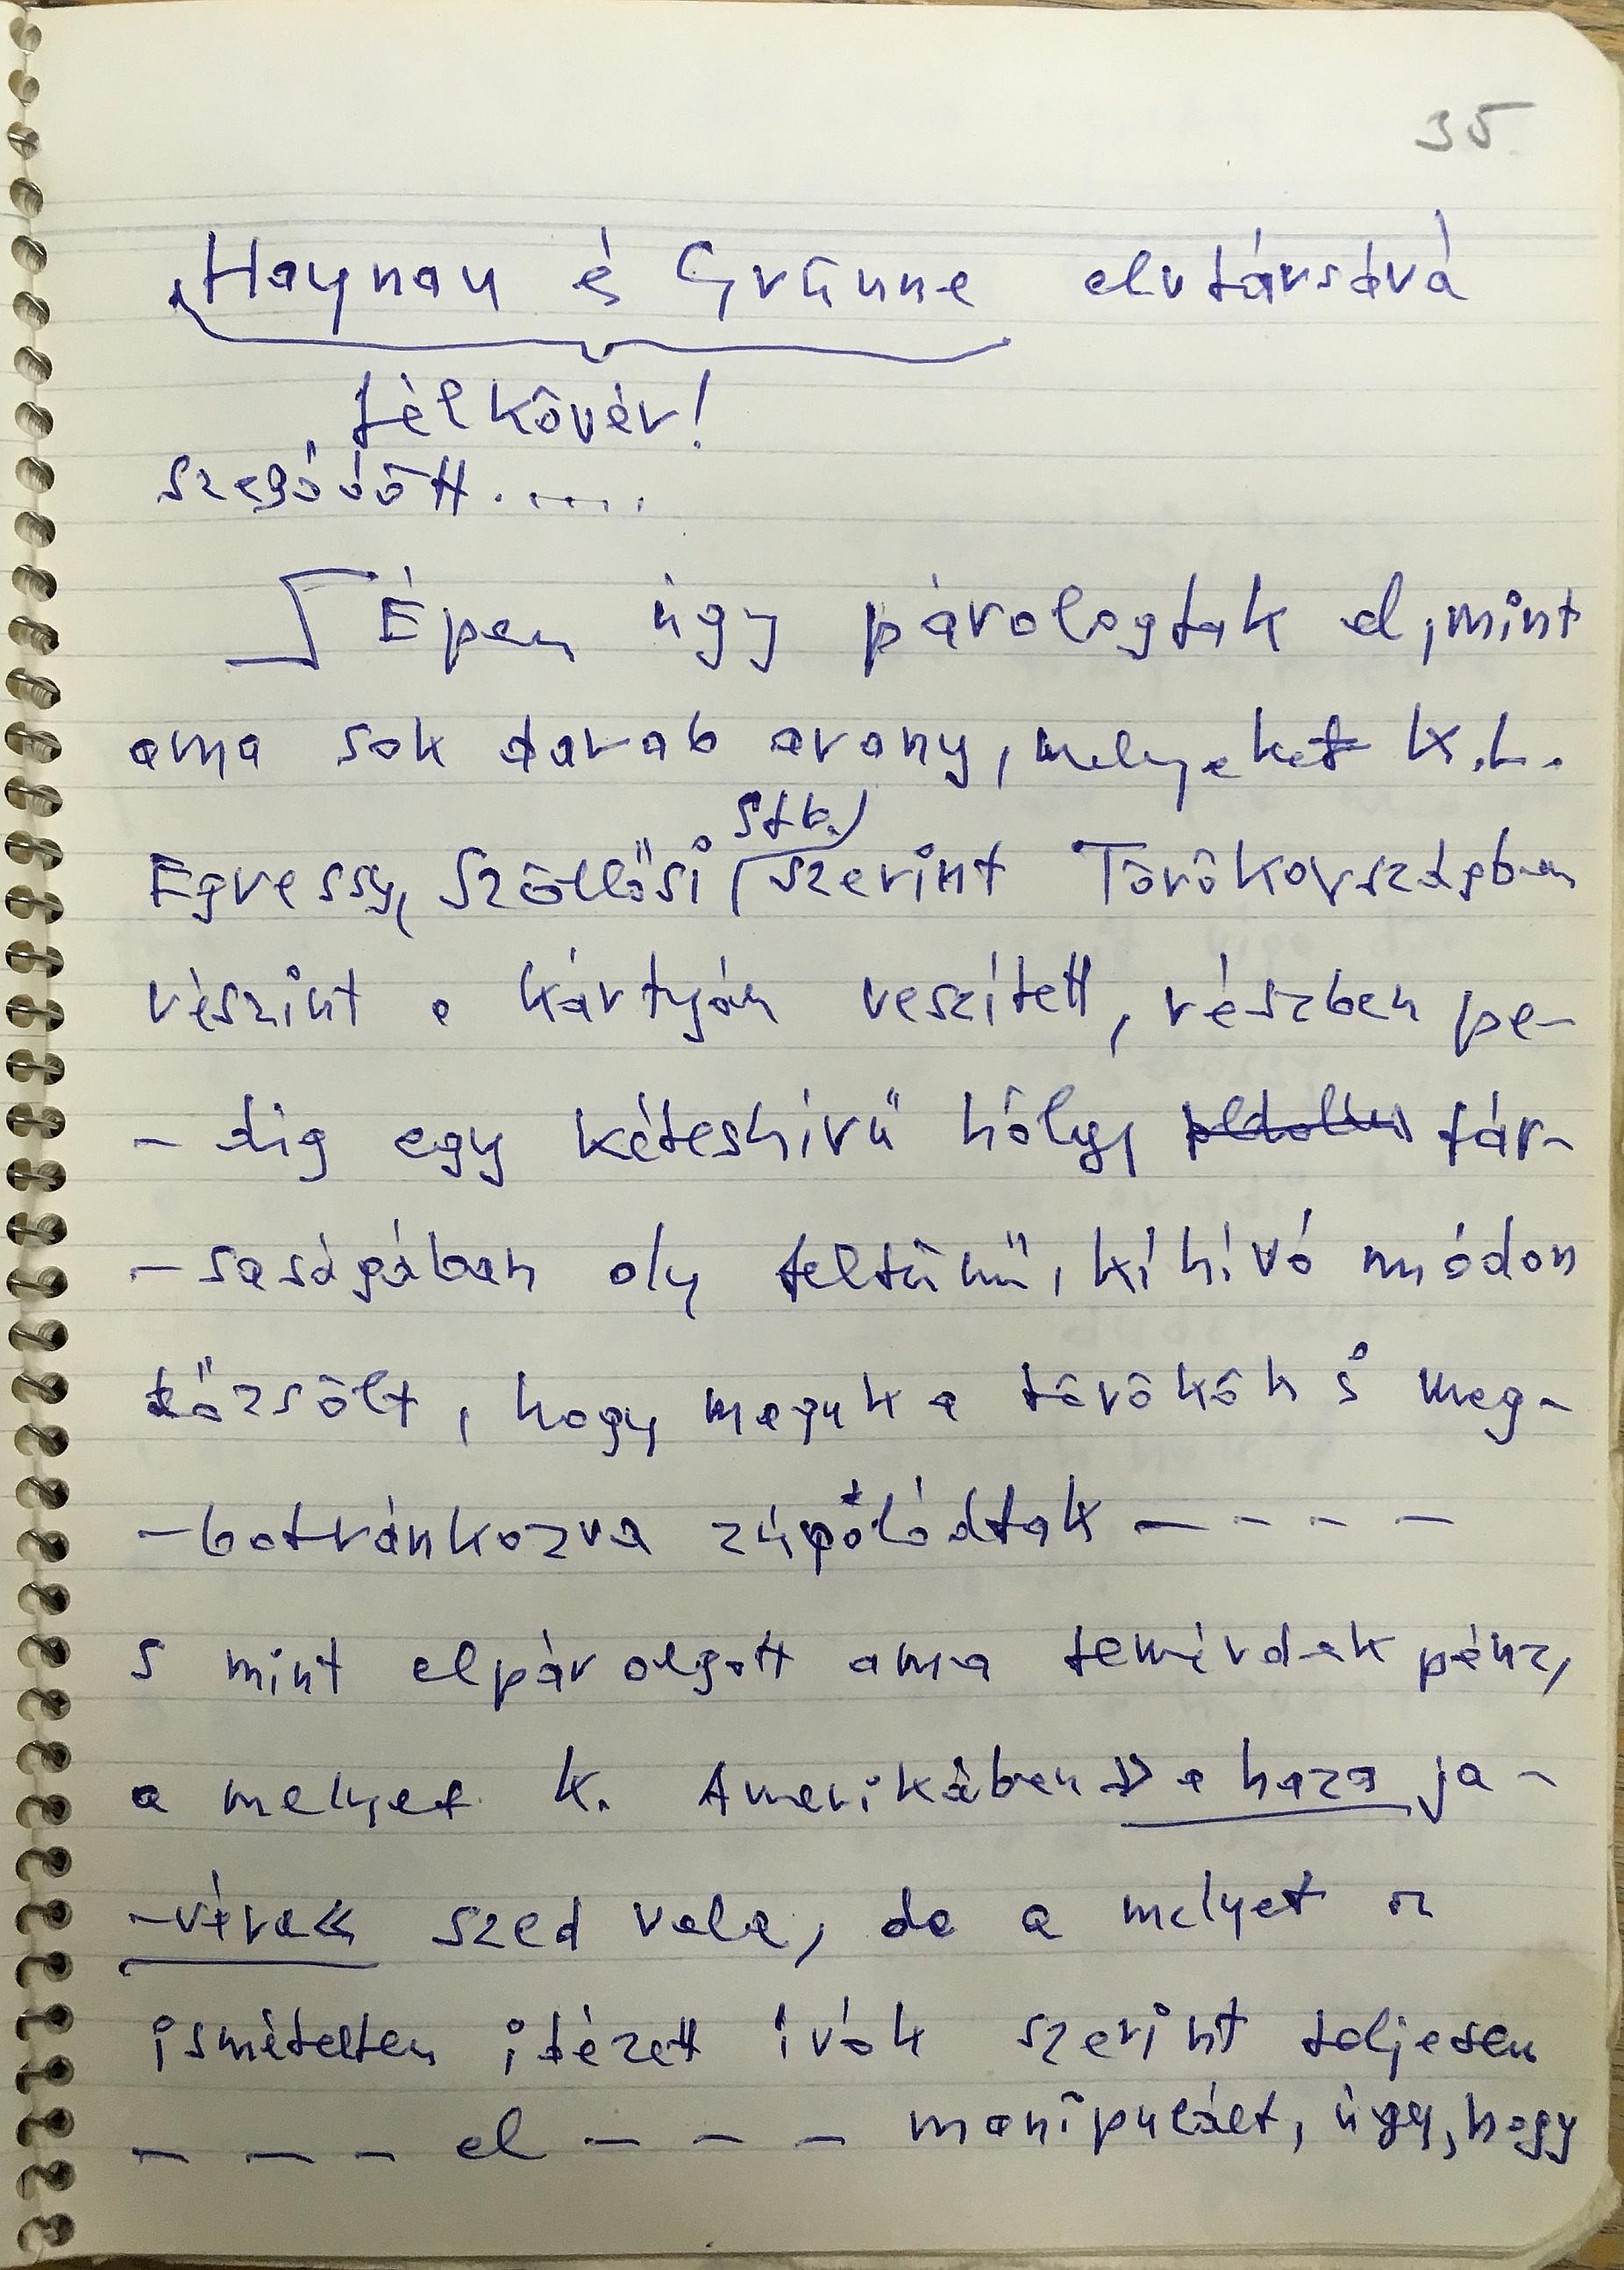 35.
Haynau és Grünne elvtársává
félkövér!
szegődött.....
Épen úgy párologtak el, mint
ama sok darab arany, melyeket K. L.
Egressy, Szöllősi stb. szerint Törökországban
részint a kártyán veszített, részben pe-
- dig egy kéteshírű hölgy tár-
- saságában oly feltűnő, kihívó módon
dőzsölt, hogy maguk a törökök is meg-
- botránkozva zúgolódtak - - - -
s mint elpárolgott ama temérdek pénz,
a melyet K. Amerikában » a haza ja-
- vára« szed vala, de a melyet az
ismételten idézett írók szerint teljesen
- - - el - - - manipulált, úgy, hogy